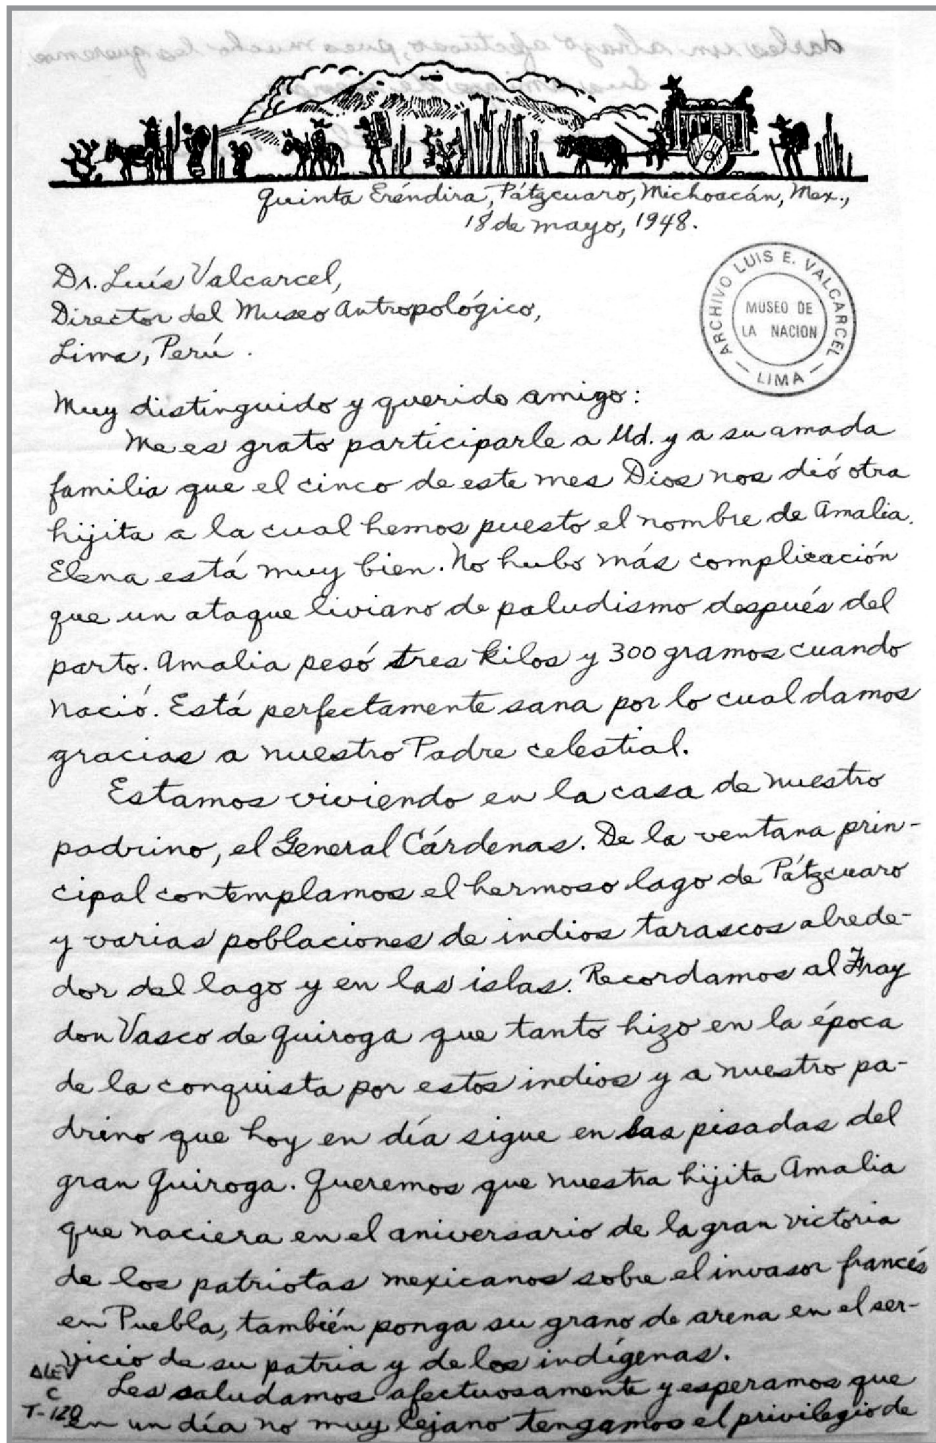 Quinta Eréndira, Pátzcuaro, Michoacán, Mex.,
18 de mayo, 1948.
Dr. Luís Valcarcel,
Director del Museo Antropológico,
Lima, Perú.
ARCHIVO LUIS E. VALCARCEL
MUSEO DE
LA NACION
LIMA
Muy distinguido y querido amigo:
Me es grato participarle a Ud. y a su amada
familia que el cinco de este mes Dios nos dió otra
hijita a la cual hemos puesto el nombre de Amalia.
Elena está muy bien. No hubo más complicación
que un ataque liviano de paludismo después del
parto. Amalia pesó tres kilos y 300 gramos cuando
nació. Está perfectamente sana por lo cual damos
gracias a nuestro Padre celestial.
Estamos viviendo en la casa de nuestro
padrino, el General Cárdenas. De la ventana prin-
cipal contemplamos el hermoso lago de Pátzcuaro
y varias poblaciones de indios tarascos alrede-
dor del lago y en las islas. Recordamos al Fray
don Vasco de Quiroga que tanto hizo en la época
de la conquista por estos indios y a nuestro pa-
drino que hoy en día sigue en las pisadas del
gran Quiroga. Queremos que nuestra hijita Amalia
que naciera en el aniversario de la gran victoria
de los patriotas mexicanos sobre el invasor francés
en Puebla, también ponga su grano de arena en el ser-
vicio de su patria y de los indígenas.
Les saludamos afectuosamente y esperamos que
en un día no muy lejano tengamos el privilegio de
ALEV
C
T-120